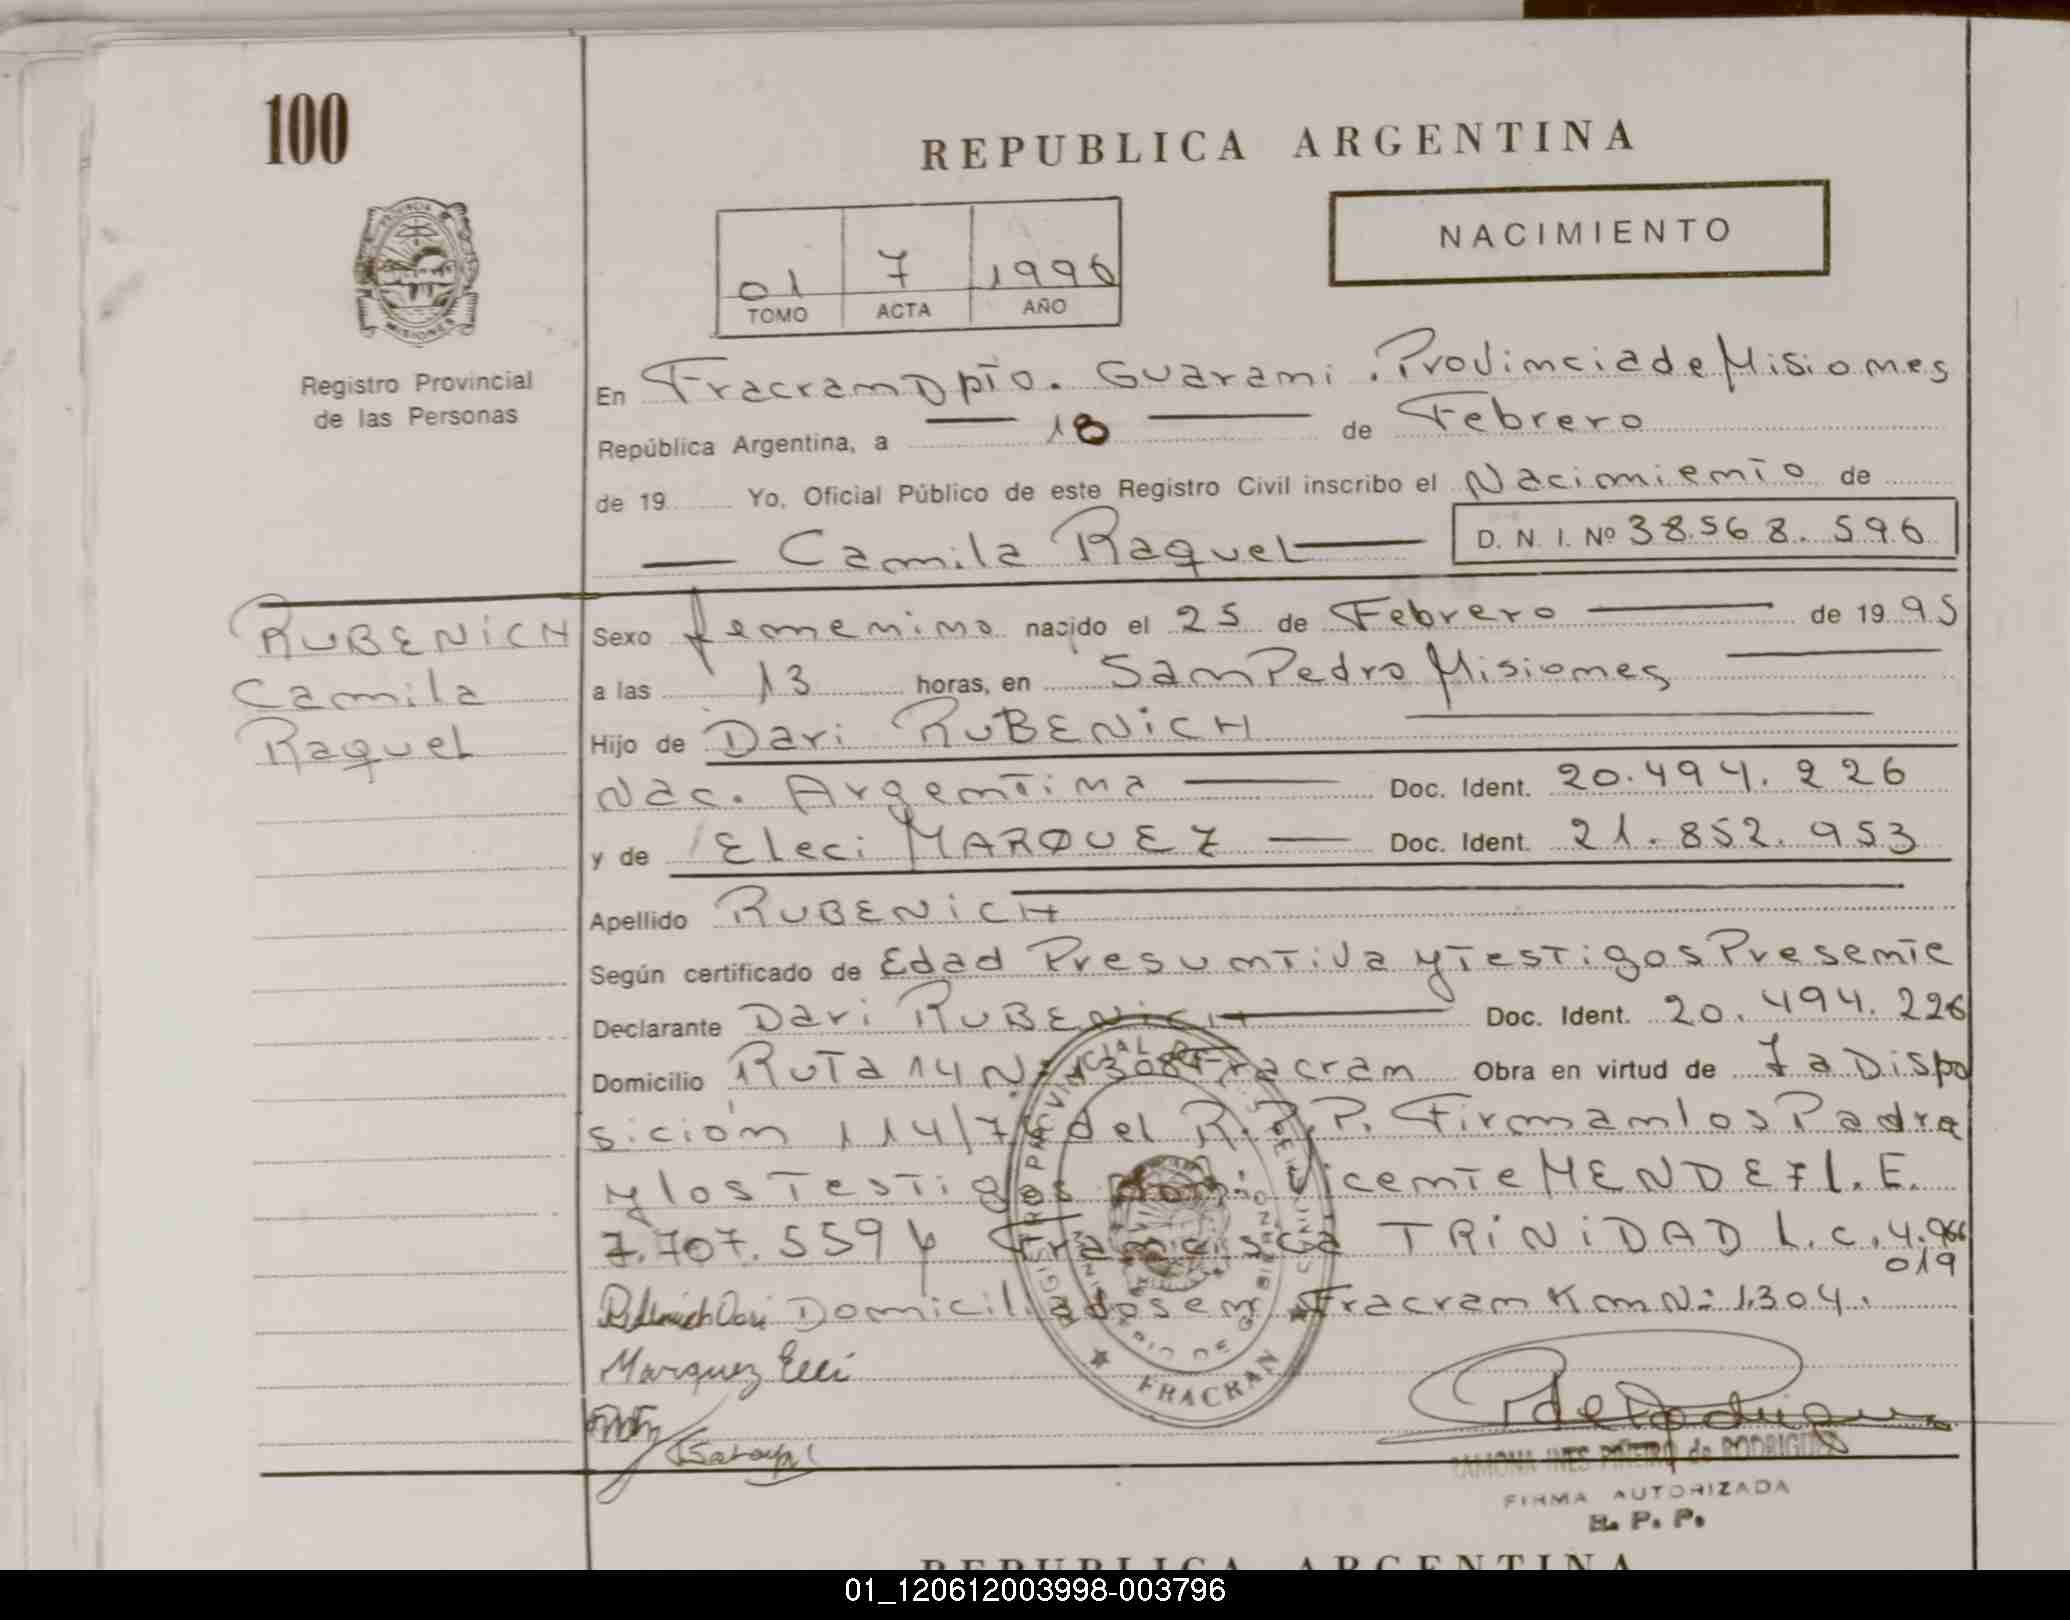 100
REPUBLICA ARGENTINA
NACIMIENTO
01 7 1996
TOMO ACTA AÑO
Registro Provincial
de las Personas
En Fracran Dpto. Guarani. Provincia de Misiones
República Argentina, a 18 de Febrero
de 19 Yo, Oficial Público de este Registro Civil inscribo el Nacimiento de
Camila Raquel D. N. I. Nº 38.568.596
RUBENiCH
Camila
Raquel
Sexo femenino nacido el 25 de Febrero de 1995
a las 13 horas, en San Pedro Misiones
Hijo de Dari RUBENiCH
Nac. Argentina Doc. Ident. 20.494.226
y de Eleci MARQUEZ Doc. Ident. 21.852.953
Apellido RUBENiCH
Según certificado de Edad Presuntiva y Testigos Presente
Declarante Dari RUBENiCH Doc. Ident. 20.494.226
Domicilio Ruta 14 Nº 1308 Fracran Obra en virtud de La Dispo
sición 114/ del R.P.P. Firman los Padre
y los Testigos Vicente MENDEZ L.E.
7.707.559 y Francisca TRiNiDAD L.C. 4.966
019
Domiciliados en Fracran Km Nº 1.304.
Marquez Eleci
FRACRAN
RAMONA INES PIÑEIRO de RODRIGUES
FIRMA AUTORIZADA
R. P. P.
REPUBLICA ARGENTINA
01_120612003998-003796